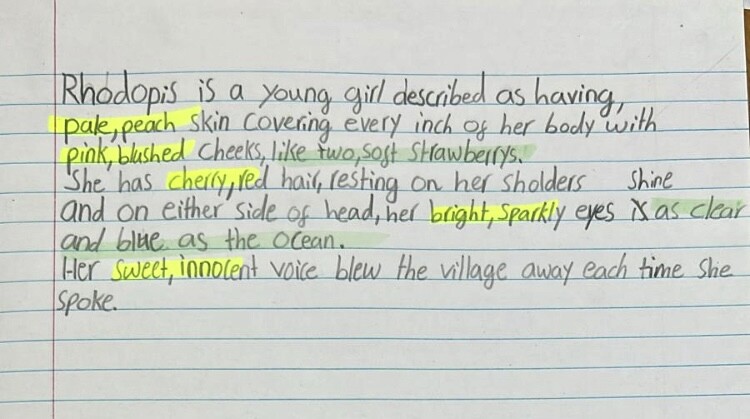 Rhodopis is a young girl described as having,
pale, peach skin covering every inch of her body with
pink, blushed cheeks, like two, soft strawberrys.
She has cherry, red hair, resting on her sholders shine
and on either side of head, her bright, sparkly eyes is as clear
and blue as the ocean.
Her sweet, innocent voice blew the village away each time she
spoke.